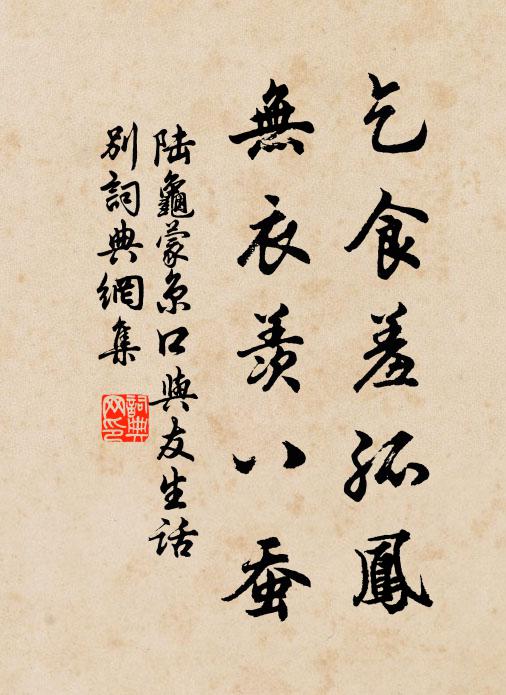 乞食羞孤鳳
無衣羡八蚕
陆龜蒙京口與友生話
別詞典網集
詞典
网印